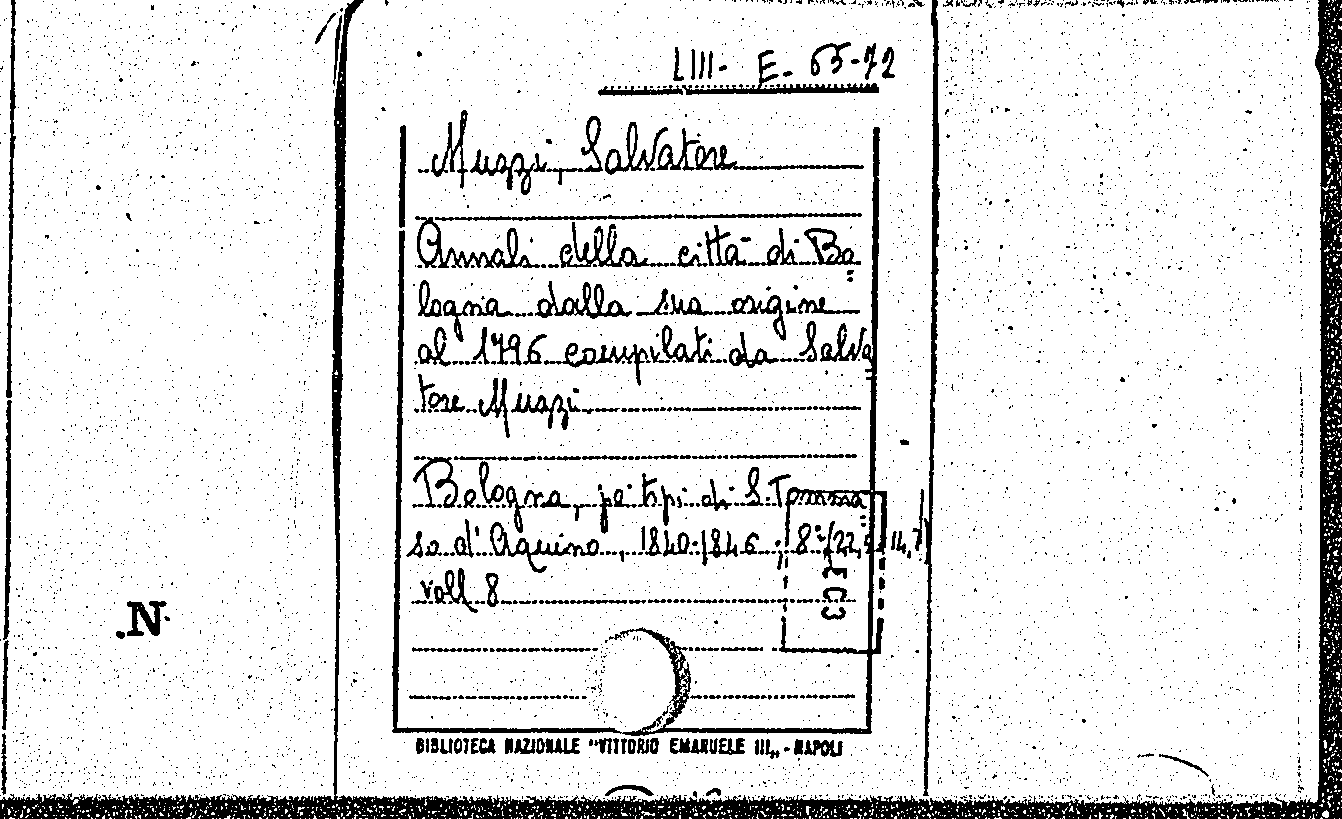 LIII- E- 65-72
Muzzi, Salvatore
Annali della città di Bo=
logna dalla sua origine
al 1796 compilati da Salva=
tore Muzzi
Bologna, pe' tipi di S. Tomma=
so d'Aquino, 1840-1846; 8°
voll 8
.N.
BIBLIOTECA NAZIONALE "VITTORIO EMANUELE III„ - NAPOLI